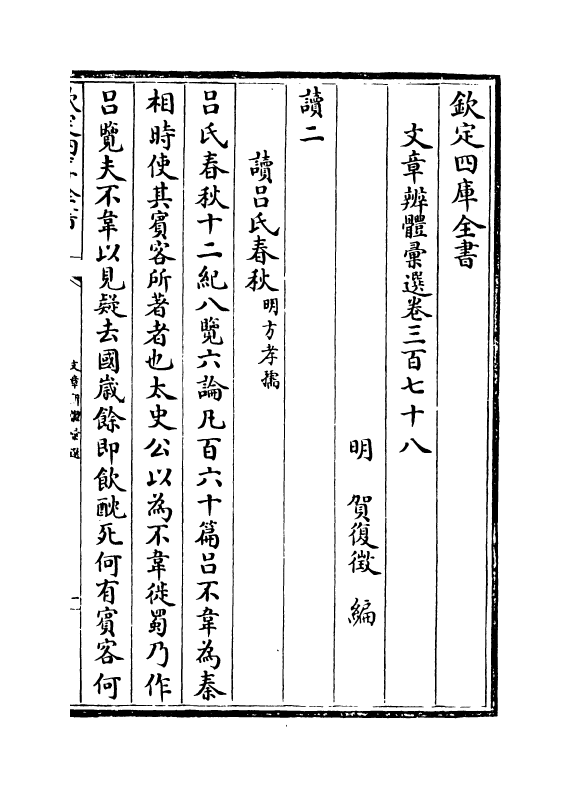 欽定四庫全書
文章辨體彚選卷三百七十八
明 賀復徵 編
讀二
讀吕氏春秋明方孝孺
吕氏春秋十二紀八覽六論凡百六十篇吕不韋為秦
相時使其賓客所著者也太史公以為不韋徙蜀乃作
吕覽夫不韋以見疑去國嵗餘即飲酖死何有賓客何